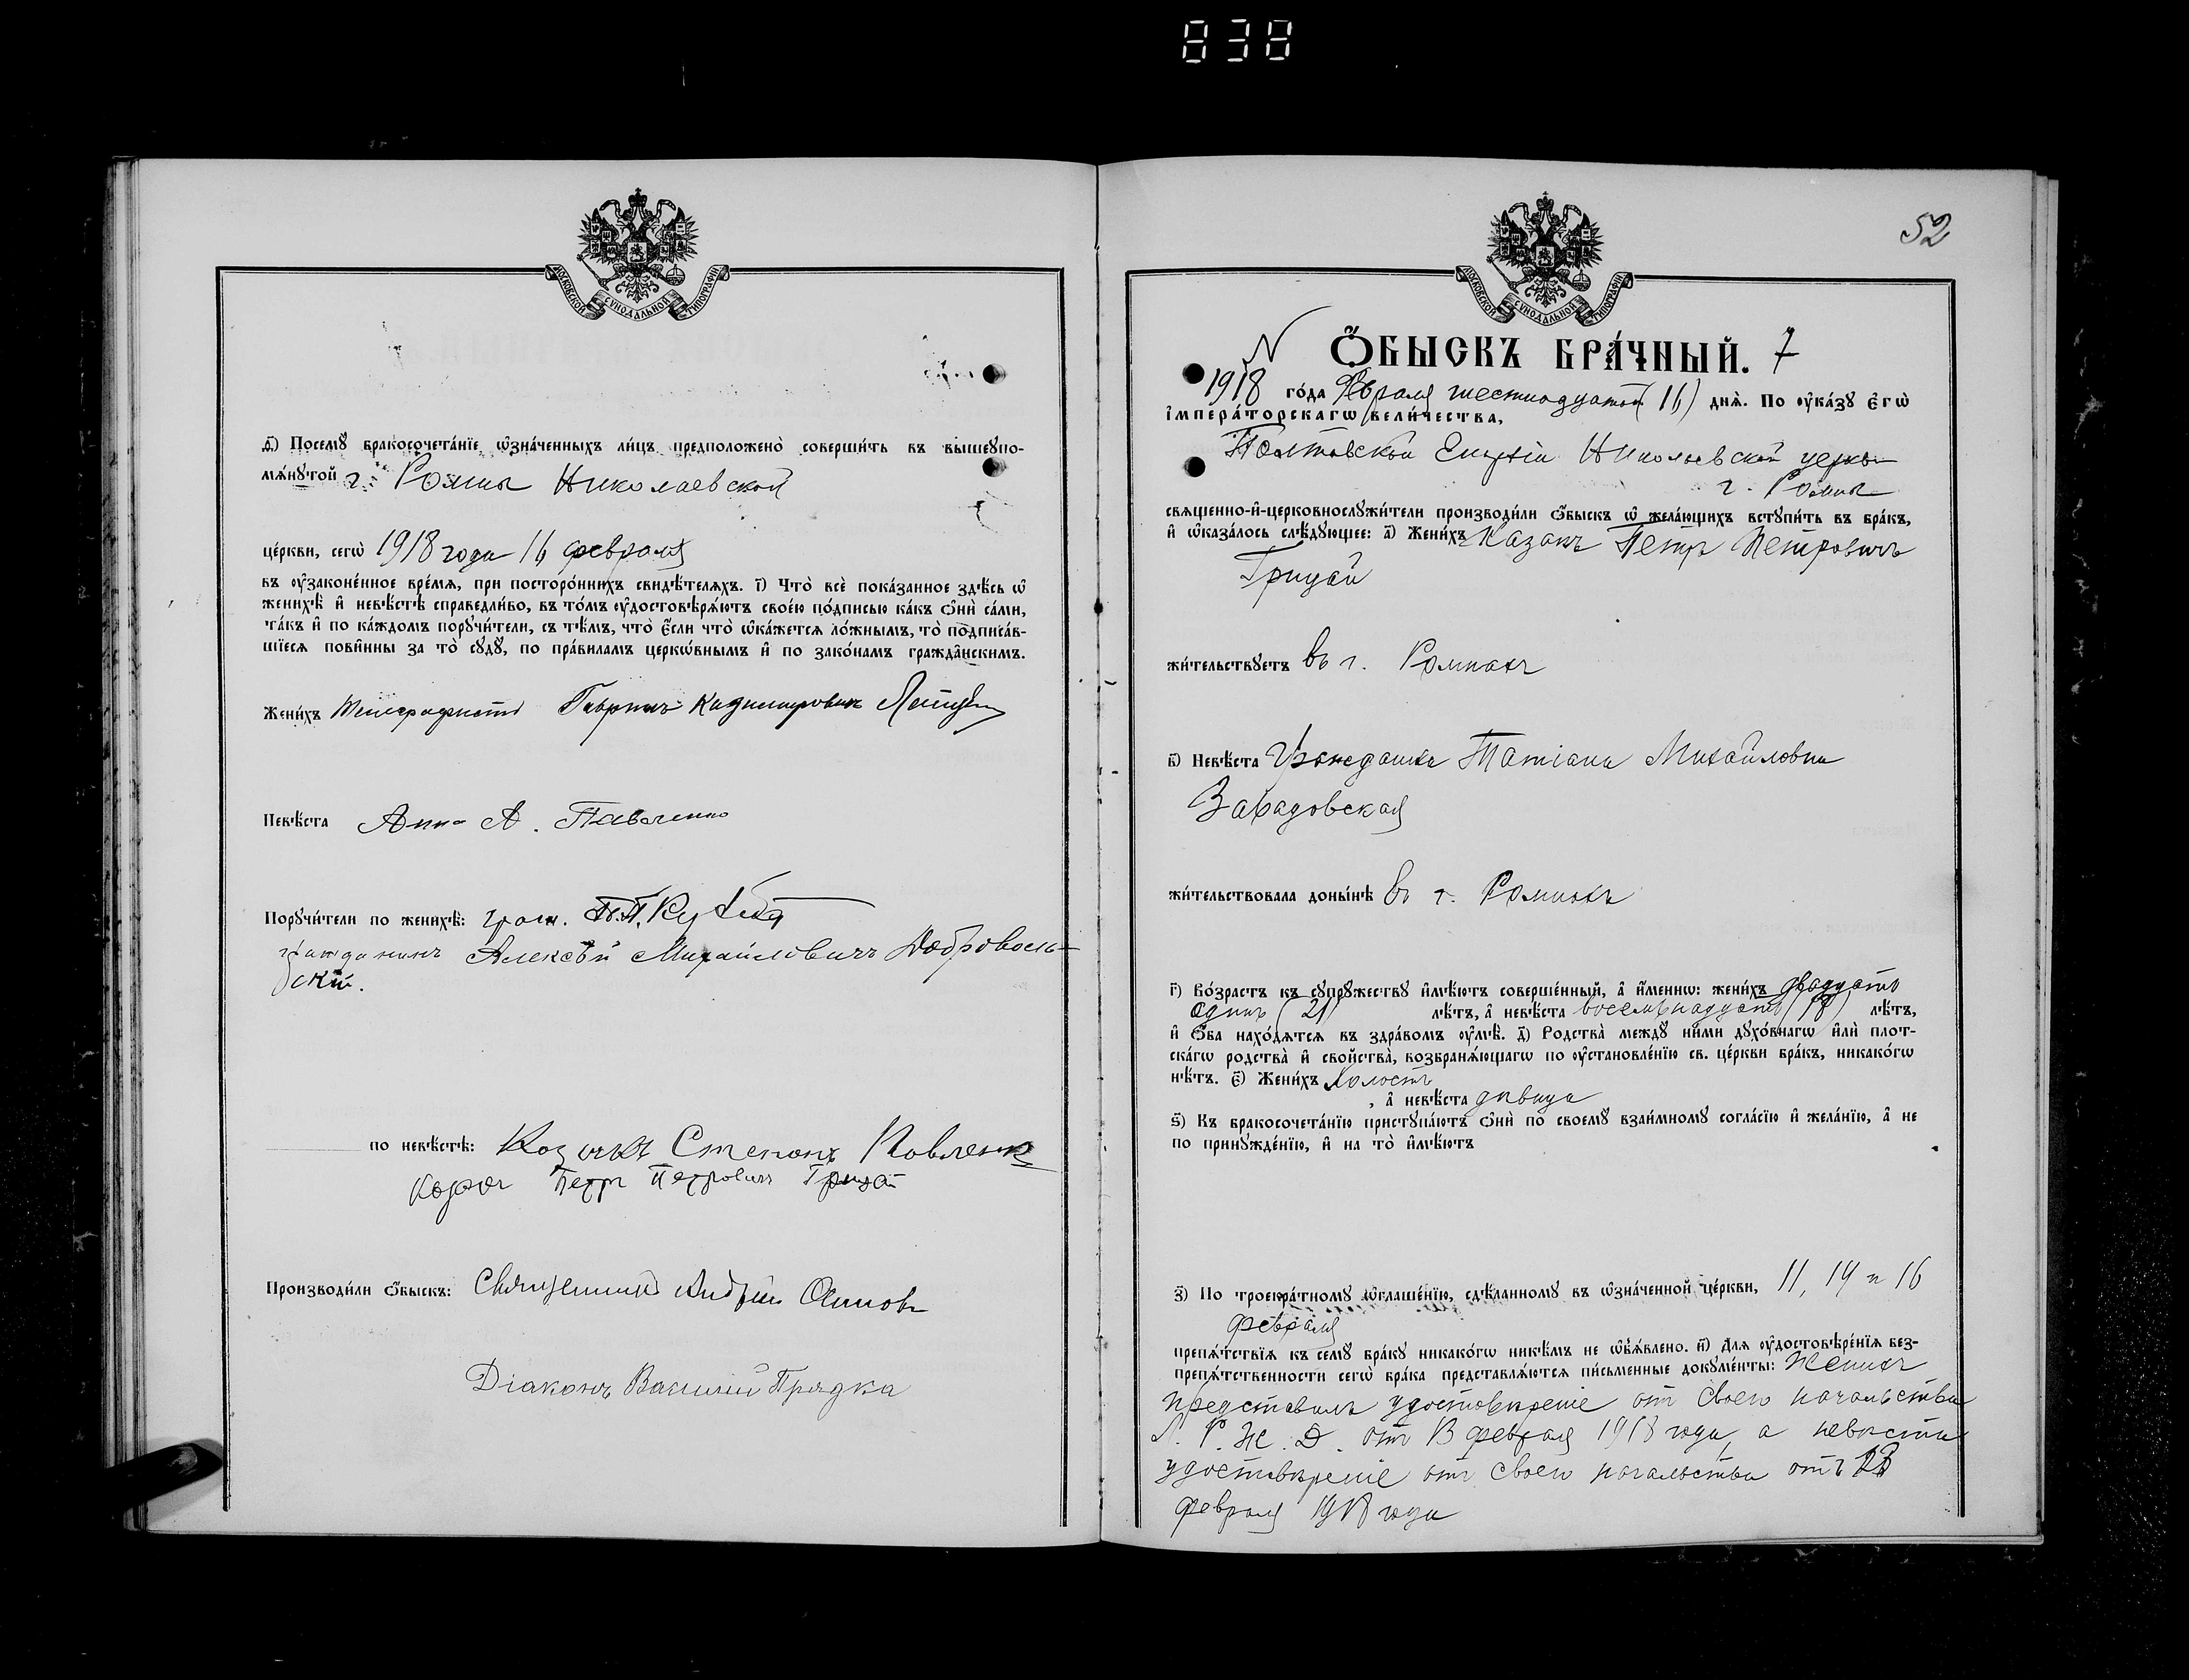 838
МОСКОВСКОЙ СУНОДАЛЬНОЙ ТИПОГРАФІИ
д҃) Посемꙋ̀ бракосочета́нїе ѡ҆зна́ченныхъ ли́цъ предположено̀ соверши́ть въ вышеꙋпо-
мѧ́нꙋтой г. Ромны Николаевской
це́ркви, сегѡ̀ 1918 года 16 февраля
въ ᲂу҆законе́нное вре́мѧ, при посторо́ннихъ свидѣ́телѧхъ. і҃) Что̀ всѐ пока́занное здѣ́сь ѡ҆
женихѣ̀ и҆ невѣ́стѣ справедли́во, въ то́мъ ᲂу҆достовѣрѧ́ютъ свое́ю по́дписью ка́къ ѻ҆нѝ са́ми,
та́къ и҆ по ка́ждомъ порꙋчи́тели, съ тѣ́мъ, что̀ є҆́сли что̀ ѡ҆ка́жетсѧ ло́жнымъ, то̀ подписа́в-
шїесѧ пови́нны за то̀ сꙋдꙋ̀, по пра́виламъ церкѡ́внымъ и҆ по зако́намъ гражда̑нскимъ.
Жени́хъ Телеграфистъ
Невѣ́ста Анна А. Павленко
Порꙋчи́тели по женихѣ̀: граж.
гражданинъ Алексѣй Михайловичъ Доброволь-
скій.
по невѣ́стѣ: Козакъ Степанъ Павленко
Козакъ Петръ Петровичъ Грицай
Производи́ли ѻ҆́быскъ: Священникъ Андрей
Діаконъ Василій Прядка
52
МОСКОВСКОЙ СУНОДАЛЬНОЙ ТИПОГРАФІИ
N Ѻ҆́БЫСКЪ БРА́ЧНЫЙ. 7
1918 го́да Февраля шестнадцатого (16) днѧ̀. По ᲂу҆ка́зꙋ Є҆гѡ̀
І҆мпера́торскагѡ вели́чества,
Полтавской Епархіи Николаевской церкви
г. Ромны
свѧщенно-и҆-церковнослꙋжи́тели производи́ли ѻ҆́быскъ ѡ҆ жела́ющихъ встꙋпи́ть въ бра́къ,
и҆ ѡ҆каза́лось слѣ́дꙋющее: а҃) Жени́хъ Казакъ Петръ Петровичъ
Грицай
жи́тельствꙋетъ въ г. Ромнахъ
в҃) Невѣ́ста Гражданка Татіана Михайловна
Завадовская
жи́тельствовала доны́нѣ въ г. Ромнахъ
г҃) Во́зрастъ къ сꙋпрꙋ́жествꙋ и҆мѣ́ютъ соверше́нный, а҆ и҆́менню: жени́хъ двадцать
одинъ (21) лѣ́тъ, а҆ невѣ́ста восемнадцать (18) лѣ́тъ,
и҆ ѻ҆́ба нахо́дѧтсѧ въ здра́вомъ ᲂу҆мѣ̀. д҃) Родства̀ междꙋ ни́ми дꙋхо́внагѡ и҆лѝ плот-
ска́гѡ родства̀ и҆ свойства̀, возбранѧ́ющагѡ по ᲂу҆становле́нїю св. це́ркви бра́къ, никако́гѡ
нѣ́тъ. є҃) Жени́хъ холостъ
, а҆ невѣ́ста дѣвица
ѕ҃) Къ бракосочета́нїю пристꙋпа́ютъ ѻ҆нѝ по своемꙋ̀ взаи́мномꙋ согла́сїю и҆ жела́нїю, а҆ не
по принꙋжде́нїю, и҆ на то̀ и҆мѣ́ютъ
з҃) По троекра́тномꙋ ѡ҆глаше́нїю, сдѣ́ланномꙋ въ ѡ҆зна́ченной це́ркви, 11, 14 и 16
февраля
препѧ́тствїѧ къ семꙋ̀ бра́кꙋ никако́гѡ никѣ́мъ не ѡ҆б̾ѧ́влено. и҃) Для ᲂу҆достовѣре́нїѧ без-
препѧ́тственности сегѡ̀ бра́ка представлѧ́ютсѧ пи́сьменные докꙋме́нты: Женихъ
представилъ удостовѣреніе отъ своего начальства
Л. Р. Ж. Д. отъ 13 февраля 1918 года, а невѣста
удостовѣреніе отъ своего начальства отъ 13
февраля 1918 года